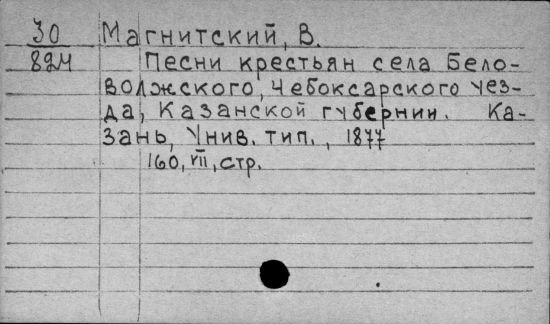 30 Магнитский, В.
824 Песни крестьян села Бело-
волжского, Чебоксарского уез-
да, Казанской губернии. Ка-
зань, Унив. тип., 1877
160, VII, стр.